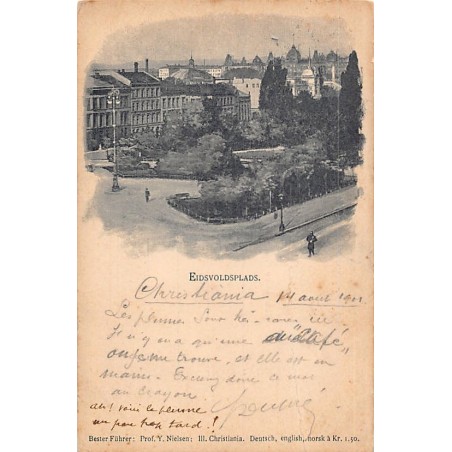 EIDSVOLDSPLADS.
Christiania 14 aout 1901
Les plumes sont très-rares ici.
Il n'y en a qu'une au "Café"
où je me trouve, et elle est en
mains. Excusez donc ce mot
au crayon.
Ah! voici la plume
un peu trop tard!
Bester Führer: Prof. Y. Nielsen; Ill. Christiania. Deutsch, english, norsk à Kr. 1.50.